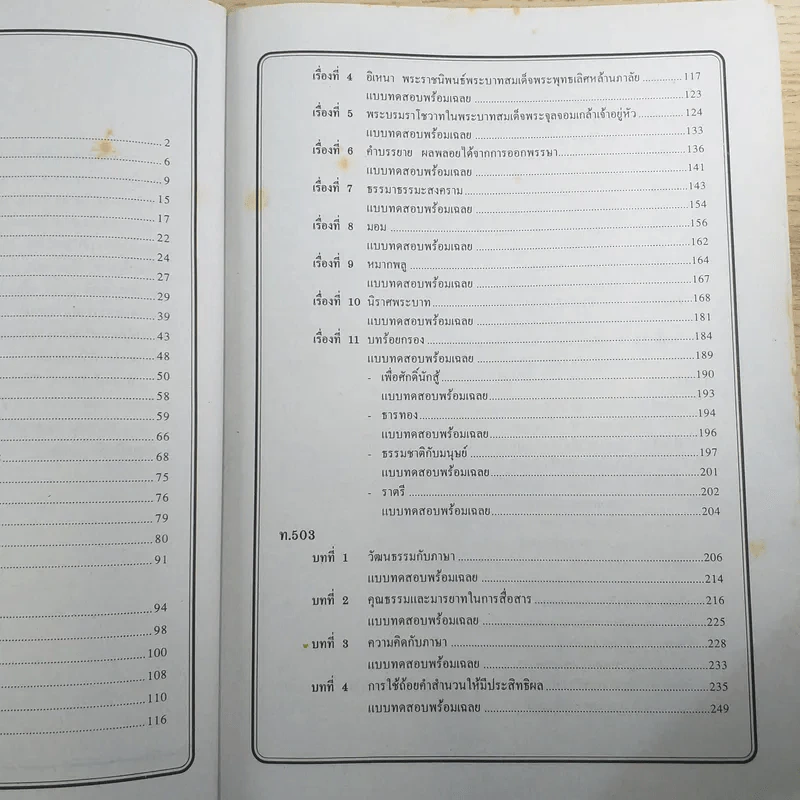 2
6
9
15
17
22
24
27
29
39
43
48
50
58
59
66
68
75
76
79
80
91
94
98
100
108
110
116
เรื่องที่ 4 อิเหนา พระราชนิพนธ์พระบาทสมเด็จพระพุทธเลิศหล้านภาลัย 117
แบบทดสอบพร้อมเฉลย 123
เรื่องที่ 5 พระบรมราโชวาทในพระบาทสมเด็จพระจุลจอมเกล้าเจ้าอยู่หัว 124
แบบทดสอบพร้อมเฉลย 133
เรื่องที่ 6 คำบรรยาย ผลพลอยได้จากการออกพรรษา 136
แบบทดสอบพร้อมเฉลย 141
เรื่องที่ 7 ธรรมาธรรมะสงคราม 143
แบบทดสอบพร้อมเฉลย 154
เรื่องที่ 8 มอม 156
แบบทดสอบพร้อมเฉลย 162
เรื่องที่ 9 หมากพลู 164
แบบทดสอบพร้อมเฉลย 167
เรื่องที่ 10 นิราศพระบาท 168
แบบทดสอบพร้อมเฉลย 181
เรื่องที่ 11 บทร้อยกรอง 184
แบบทดสอบพร้อมเฉลย 189
- เพื่อศักดิ์นักสู้ 190
แบบทดสอบพร้อมเฉลย 193
- ธารทอง 194
แบบทดสอบพร้อมเฉลย 196
- ธรรมชาติกับมนุษย์ 197
แบบทดสอบพร้อมเฉลย 201
- ราตรี 202
แบบทดสอบพร้อมเฉลย 204
ท.503
บทที่ 1 วัฒนธรรมกับภาษา 206
แบบทดสอบพร้อมเฉลย 214
บทที่ 2 คุณธรรมและมารยาทในการสื่อสาร 216
แบบทดสอบพร้อมเฉลย 225
บทที่ 3 ความคิดกับภาษา 228
แบบทดสอบพร้อมเฉลย 233
บทที่ 4 การใช้ถ้อยคำสำนวนให้มีประสิทธิผล 235
แบบทดสอบพร้อมเฉลย 249